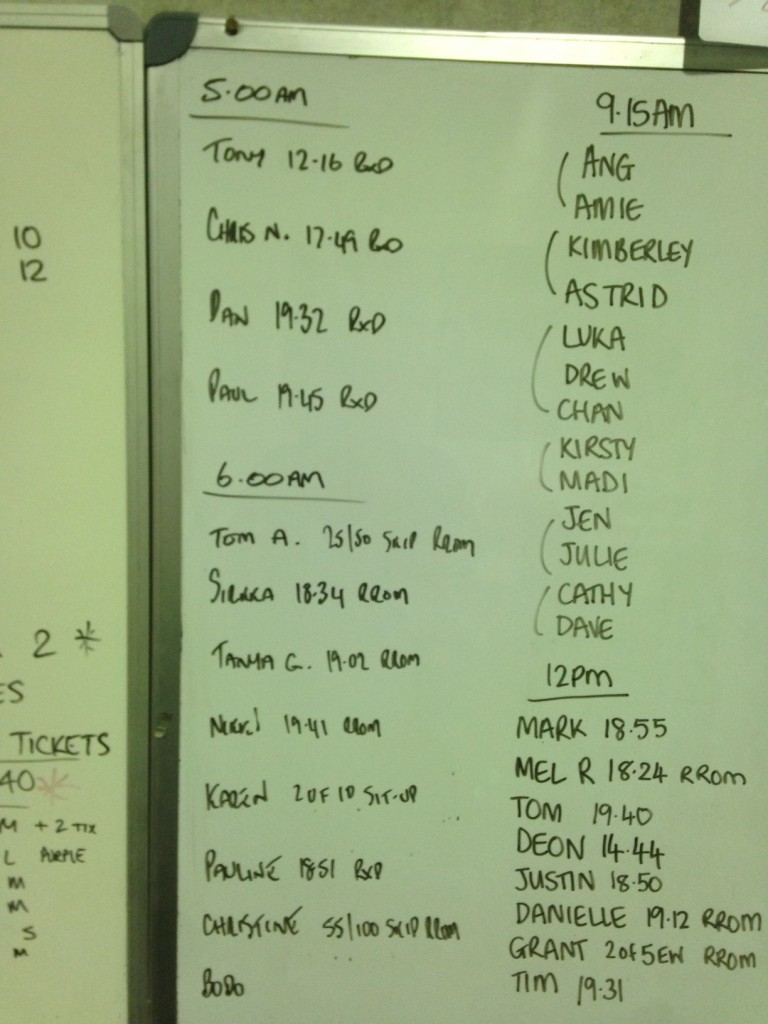 10
12
2 *
ES
TICKETS
40 *
M + 2 TIX
L PURPLE
M
M
S
M
5.00AM
TONY 12.16 RxD
CHRIS N. 17.49 RxD
DAN 19.32 RxD
PAUL 19.45 RxD
6.00AM
TOM A. 25/50 SKIP RROM
18.34 RROM
TANYA G. 19.02 RROM
NIKKI 19.41 RROM
KAREN 2 OF 10 SIT-UP
PAULINE 18.51 RxD
CHRISTINE 55/100 SKIP RROM
BODO
9.15AM
ANG
AMIE
KIMBERLEY
ASTRID
LUKA
DREW
CHAN
KIRSTY
MADI
JEN
JULIE
CATHY
DAVE
12PM
MARK 18.55
MEL R 18.24 RROM
TOM 19.40
DEON 14.44
JUSTIN 18.50
DANIELLE 19.12 RROM
GRANT 2 of 5 EW RROM
TIM 19.31